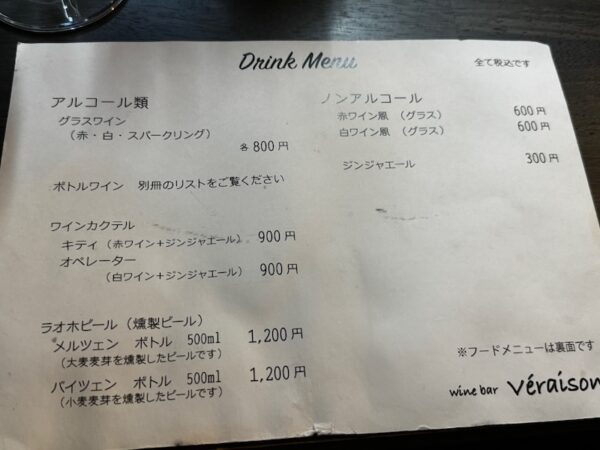 Drink Menu
全て税込です
アルコール類
グラスワイン
（赤・白・スパークリング）
各800円
ボトルワイン 別冊のリストをご覧ください
ワインカクテル
キティ（赤ワイン＋ジンジャエール） 900円
オペレーター
（白ワイン＋ジンジャエール） 900円
ラオホビール（燻製ビール）
メルツェン ボトル 500ml 1,200円
（大麦麦芽を燻製したビールです）
バイツェン ボトル 500ml 1,200円
（小麦麦芽を燻製したビールです）
ノンアルコール
赤ワイン風 （グラス） 600円
白ワイン風 （グラス） 600円
ジンジャエール 300円
※フードメニューは裏面です
wine bar Véraison